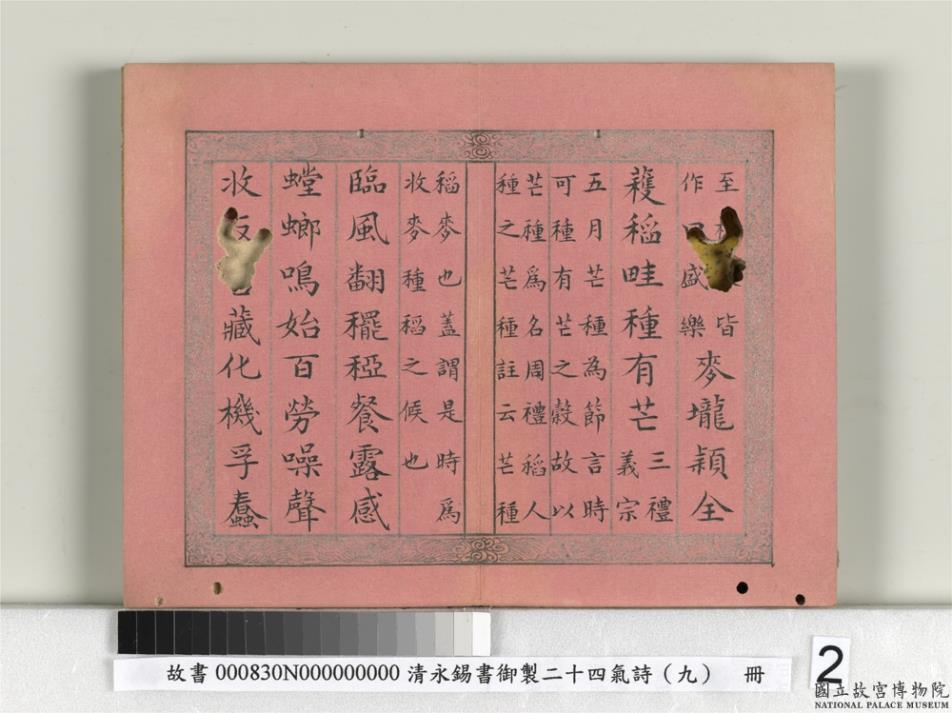 至皆
作盛樂
麥壠穎全
穫稻畦種有芒三禮
義宗
五月芒種為節言時
可種有芒之穀故以
芒種爲名周禮稻人
種之芒種註云芒種
稻麥也蓋謂是時爲
收麥種稻之候也
臨風翻穲稏餐露感
螳螂鳴始百勞噪聲
收藏化機孚蠢
故書 000830N000000000 清永錫書御製二十四氣詩（九） 冊
2
國立故宮博物院
NATIONAL PALACE MUSEUM